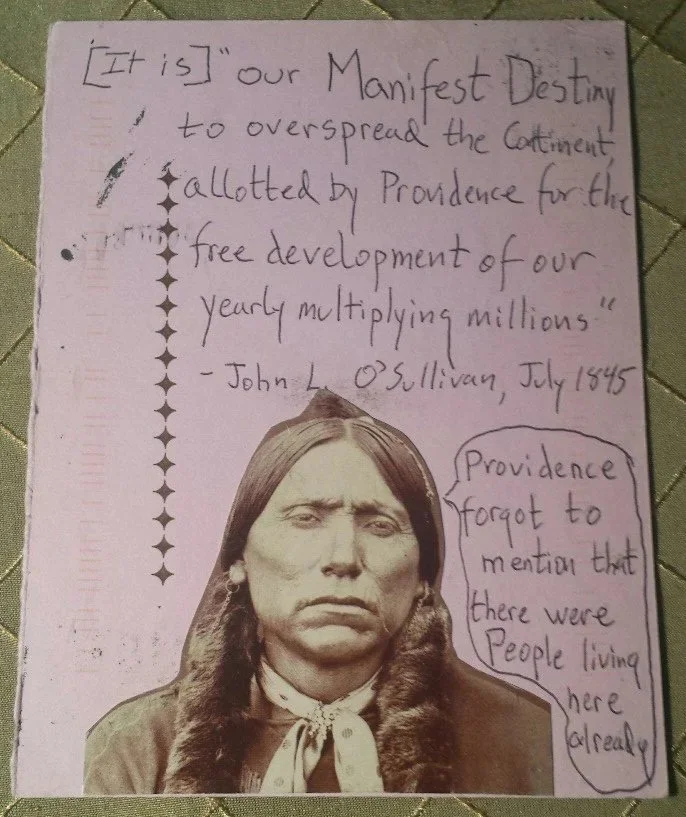 [It is] "our Manifest Destiny
to overspread the Continent,
allotted by Providence for the
free development of our
yearly multiplying millions"
- John L. O'Sullivan, July 1845
Providence
forgot to
mention that
there were
People living
here
already